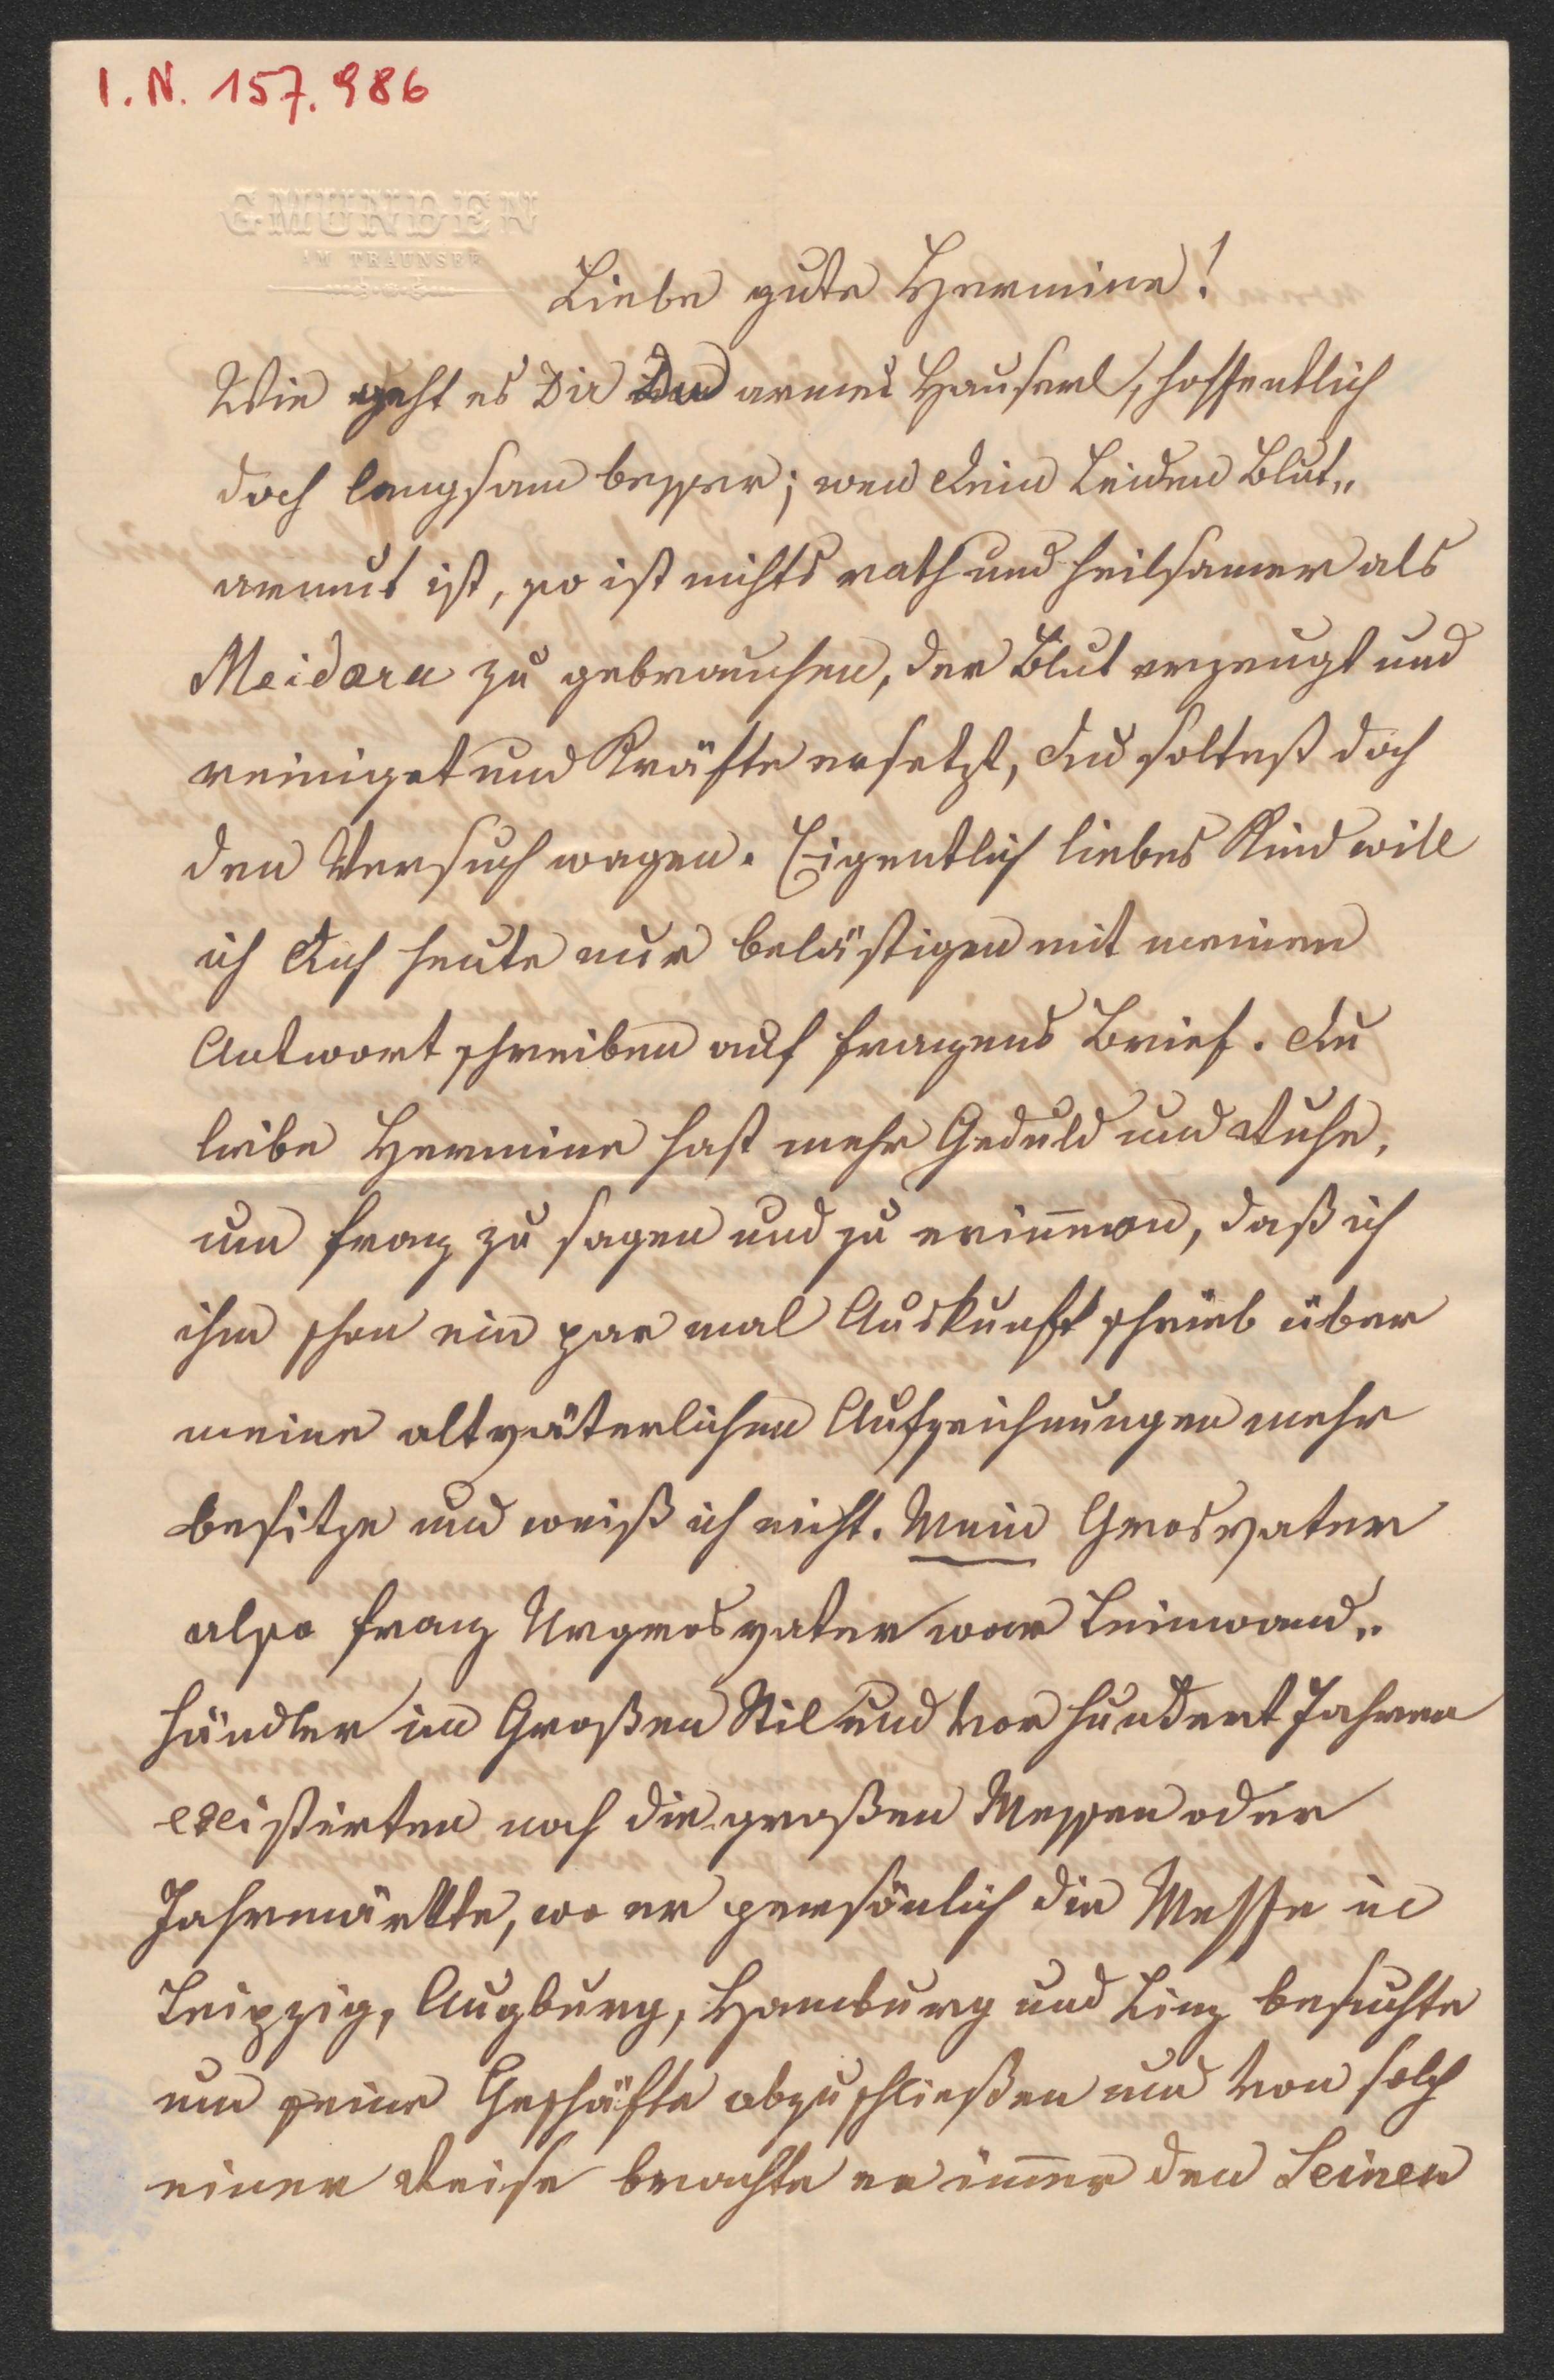 I. N. 157.986
GMUNDEN
AM TRAUNSEE
Liebe gute Hermine!
Wie geht es Dir Du armes Hauserl, hoffentlich
doch langsam besser; wen Dein Leiden Blut„
armut ist, so ist nichts rath und heilsamer als
zu gebrauchen, der Blut erzeugt und
reiniget und Kräfte ersetzt, Du soltest doch
den Versuch wagen. Eigentlich liebes Kind will
ich Dich heute nur belästigen mit meinen
Antwortschreiben auf Franzens Brief. Du
liebe Hermine hast mehr Geduld und Ruhe,
um Franz zu sagen und zu erin̅ern, daß ich
ihm schon ein par mal Auskunft schrieb über
meine altväterlichen Aufzeichnungen mehr
besitze und weiß ich nicht. Mein Grosvater
also Franz Urgrosvater war Leinwand„
händler im Großen Stil und vor hundert Jahren
existirten noch die großen Messen oder
Jahrmärkte, wo er persönlich die Messe in
Leipzig, Augburg, Hamburg und Linz besuchte
um seine Geschäfte abzuschließen und von solch
einer Reise brachte er im̅er den Seinen